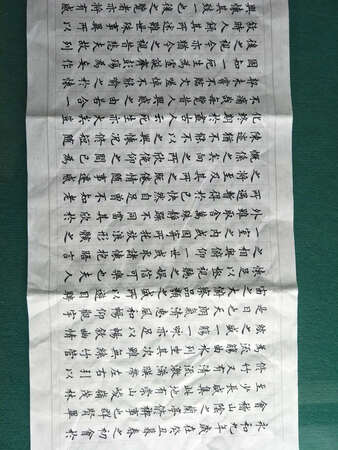 永和九年歲在癸丑暮春之初會於
會稽山陰之蘭亭脩禊事也羣賢畢
至少長咸集此地有崇山峻領茂林
脩竹又有清流激湍暎帶左右引以
為流觴曲水列坐其次雖無絲竹管
絃之盛一觴一詠亦足以暢敘幽情
是日也天朗氣清惠風和暢仰觀宇
宙之大俯察品類之盛所以遊目騁
懷足以極視聽之娛信可樂也夫人
之相與俯仰一世或取諸懷抱悟言
一室之內或因寄所託放浪形骸之
外雖趣舍萬殊靜躁不同當其欣於
所遇暫得於己快然自足不知老之
將至及其所之既倦情隨事遷感
慨係之矣向之所欣俛仰之間已為
陳跡猶不能不以之興懷況脩短隨
化終期於盡古人云死生亦大矣豈
不痛哉每覽昔人興感之由若合一
契未嘗不臨文嗟悼不能喻之於懷
固知一死生為虛誕齊彭殤為妄作
後之視今亦猶今之視昔悲夫故列
敘時人錄其所述雖世殊事異所以
興懷其致一也後之覽者亦將有感